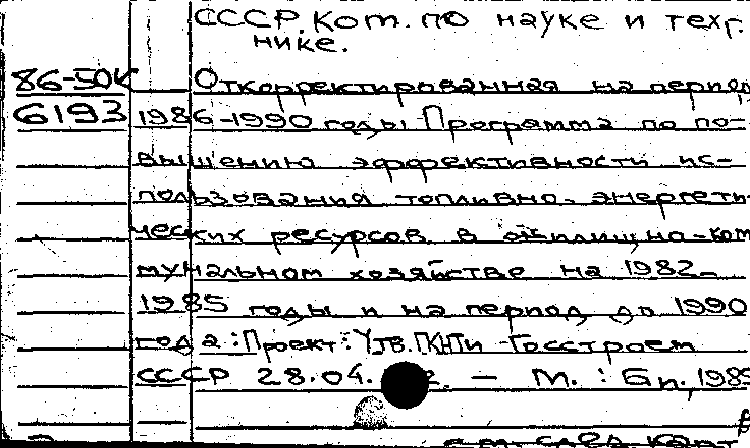 СССР. Ком. по науке и тех-
нике.
86-50К Откорректированная на период
6193 1986-1990 годы Программа по по-
вышению эффективности ис-
пользования топливно-энергети-
ческих ресурсов в жилищно-ком
мунальном хозяйстве на 1982-
1985 годы и на период до 1990
года: Проект: Утв. ГКНТи Госстроем
СССР 28.04. 2. — М. : Б.и., 1985
см. след. карт